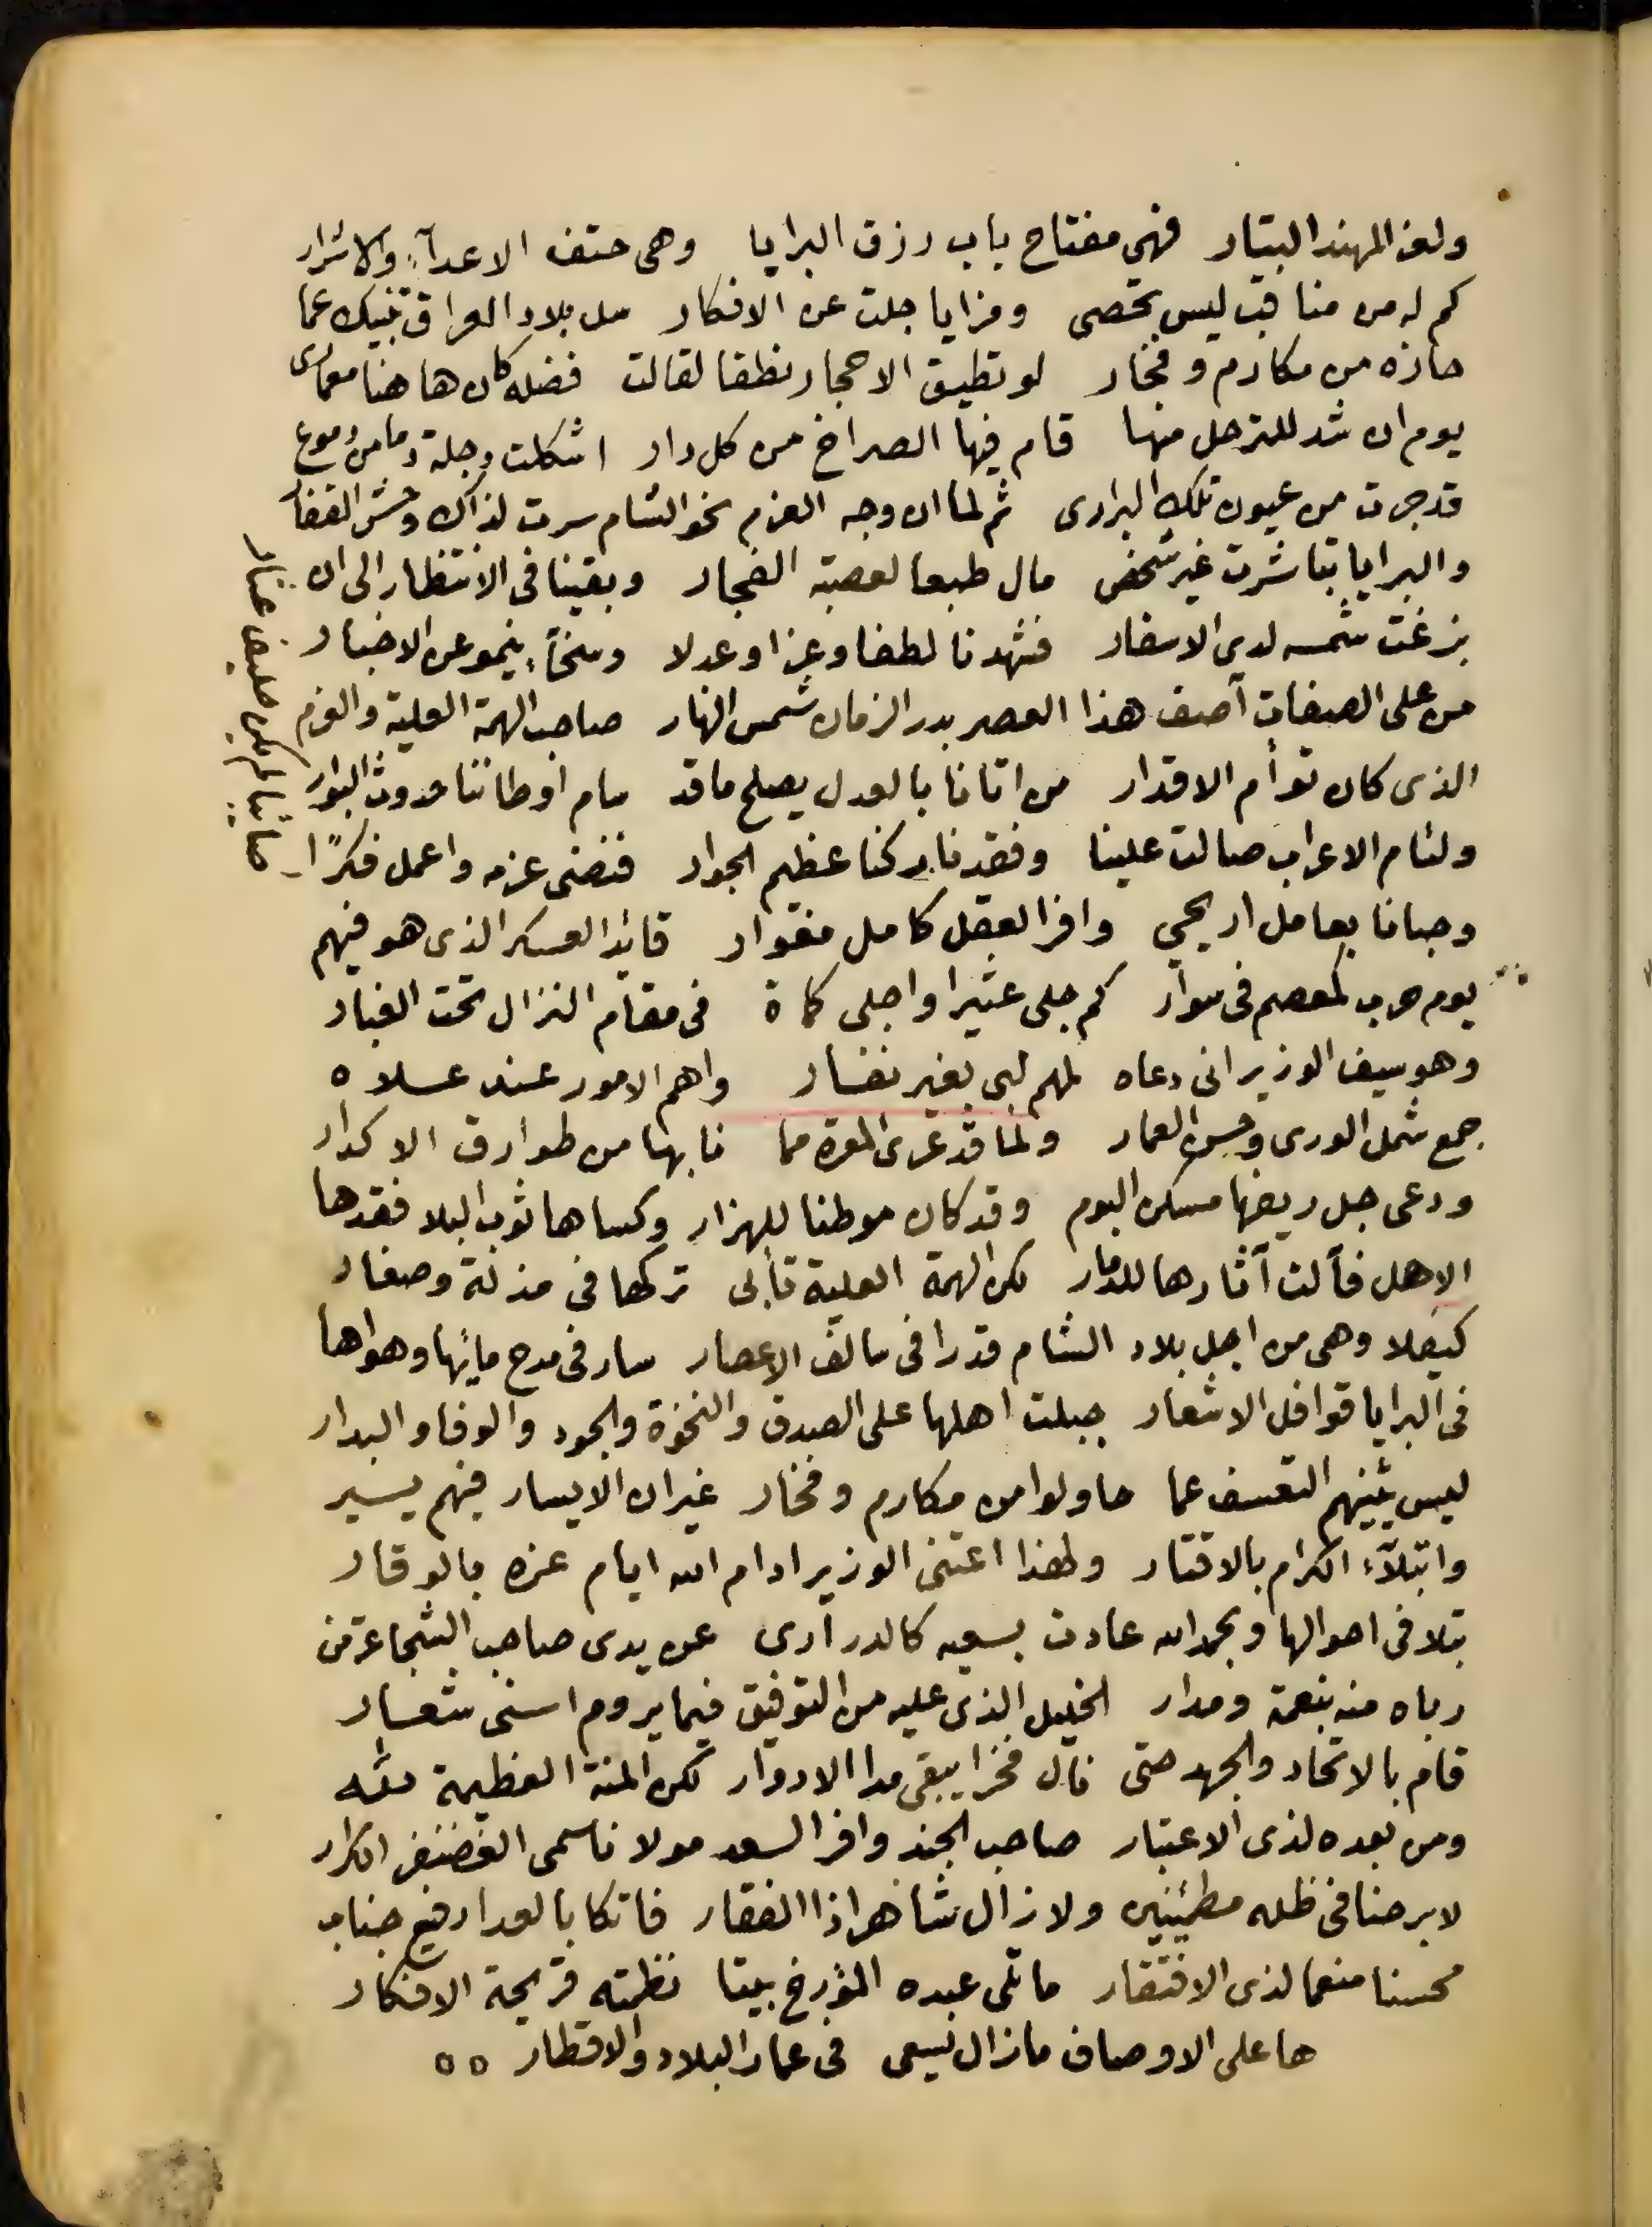 ولهز المهند البتار فهي مفتاح باب رزق البرايا وهي حتف الاعدآء والاشرار
كم له من مناقب ليس تحصى ومزايا جلت عن الافكار سل بلاد العراق تنبيك عما
حازه من مكارم وفخار لو تطيق الاحجار نطقا لقالت فضله كان هاهنا
يوم ان شد للترحل منها قام فيها الصراخ من كل دار اشكلت دجلة دما من دموع
قد جرت من عيون تلك البرارى ثم لما ان وجه العزم نحو الشام سرت لذاك وحش القفار
والبرايا تباشرت غير شخص مال طبعا لعصبة الفجار وبقينا فى الانتظار الى ان
بزغت شمسه لدى الاسفار فشهدنا لطفا وعزا وعدلا وسخآء ينمو عن الاخبار
من على الصفات آصف هذا العصر بدر الزمان شمس النهار صاحب الهمة العلية والعزم
الذى كان توأم الاقدار من اتانا بالعدل يصلح ما قد سام اوطاننا حدوث البوار
ولئام الاعراب صالت علينا وفقدنا ركنا عظيم الجوار فنضى عزمه واعمل فكرًا
وحبانا بعامل اريحي وافر العقل كامل مغوار قائد العسكر الذى هو فيهم
يوم حرب كمعصم فى سوار كم جلى عثيرا واجلى كماة فى مقام النزال تحت الغبار
وهو سيف الوزير انى دعاه لمهم لبى بغير نفار واهم الامور عند علاه
جمع شمل الورى وحسن العمار ولما قد عرى المعرة مما نابها من طوارق الاكدار
ودعى جل ربضها مسكن البوم وقد كان موطنا للهزار وكساها ثوب البلا فقدها
الاهل فآلت آثارها للدمار لكن الهمة العلية تأبى تركها فى مذلة وصغار
كيف لا وهي من اجل بلاد الشام قدرا فى سالف الاعصار سار فى مدح مائها وهواها
فى البرايا قوافل الاشعار جبلت اهلها على الصدق والنخوة والجود والوفا والبدار
ليس يثنيهم التعسف عما حاولوا من مكارم وفخار غير ان الايسار فيهم يسير
وابتلآء الكرام بالاقتار ولهذا اعتنى الوزير ادام الله ايام عزه بالوقار
بتلافى احوالها وبحمد الله عادت بسعيه كالدرارى عن يدى صاحب الشجاعة من
رباه منه بنعمة ومدار الخليل الذى عليه من التوفيق فيما يروم اسنى شعار
قام بالاتحاد والجهد حتى نال فخرا يبقى مدا الادوار لكن المنة العظيمة لله
ومن بعده لذى الاعتبار صاحب الجند وافر السعد مولانا سمى الغضنفر الكرار
لا برحنا فى ظله مطمئنين ولا زال شاهرا ذا الفقار فاتكا بالعدا رفيع جناب
محسنا منعما لذى الافتقار ما تلى عبده المؤرخ بيتا نظمته قريحة الافكار
ها على الاوصاف ما زال يسعى فى عمار البلاد والاقطار ٥٥